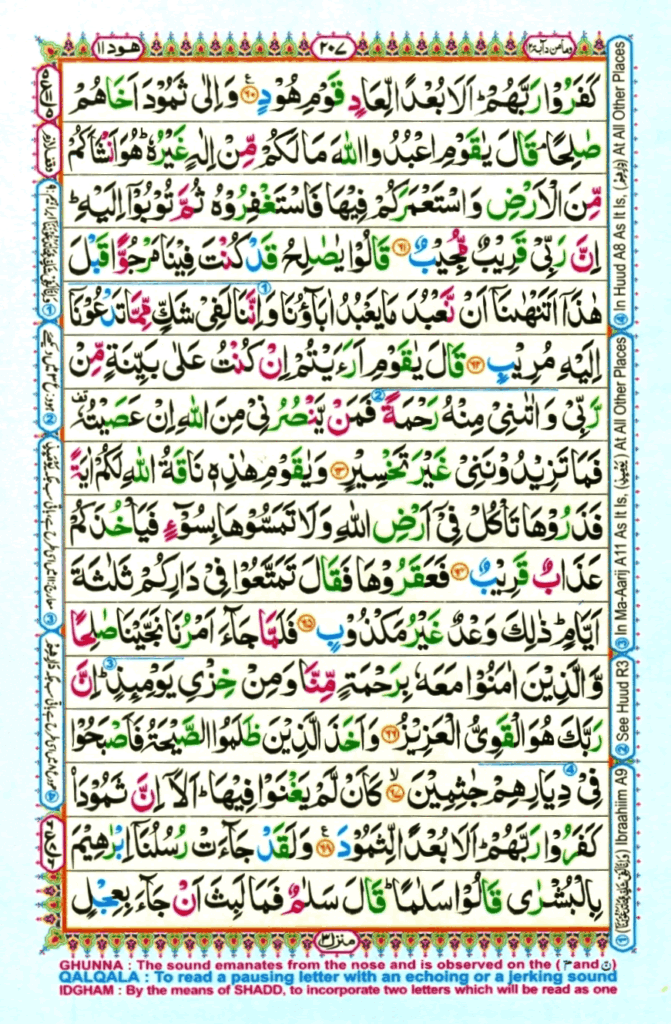 وما من دآبة ١٢
٢٠٧
هود ١١
كَفَرُوْا رَبَّهُمْ ؕ اَلَا بُعْدًا لِّعَادٍ قَوْمِ هُوْدٍ ۟۶۰ وَ اِلٰى ثَمُوْدَ اَخَاهُمْ
صٰلِحًا ۘ قَالَ يٰقَوْمِ اعْبُدُوا اللّٰهَ مَا لَكُمْ مِّنْ اِلٰهٍ غَيْرُهٗ ؕ هُوَ اَنْشَاَكُمْ
مِّنَ الْاَرْضِ وَ اسْتَعْمَرَكُمْ فِيْهَا فَاسْتَغْفِرُوْهُ ثُمَّ تُوْبُوْۤا اِلَيْهِ ؕ
اِنَّ رَبِّيْ قَرِيْبٌ مُّجِيْبٌ ۶۱ قَالُوْا يٰصٰلِحُ قَدْ كُنْتَ فِيْنَا مَرْجُوًّا قَبْلَ
هٰذَاۤ اَتَنْهٰىنَاۤ اَنْ نَّعْبُدَ مَا يَعْبُدُ اٰبَآؤُنَا وَ اِنَّنَا لَفِيْ شَكٍّ مِّمَّا تَدْعُوْنَاۤ
اِلَيْهِ مُرِيْبٍ ۶۲ قَالَ يٰقَوْمِ اَرَءَيْتُمْ اِنْ كُنْتُ عَلٰى بَيِّنَةٍ مِّنْ
رَّبِّيْ وَ اٰتٰىنِيْ مِنْهُ رَحْمَةً فَمَنْ يَّنْصُرُنِيْ مِنَ اللّٰهِ اِنْ عَصَيْتُهٗ
فَمَا تَزِيْدُوْنَنِيْ غَيْرَ تَخْسِيْرٍ ۶۳ وَ يٰقَوْمِ هٰذِهٖ نَاقَةُ اللّٰهِ لَكُمْ اٰيَةً
فَذَرُوْهَا تَاْكُلْ فِيْۤ اَرْضِ اللّٰهِ وَ لَا تَمَسُّوْهَا بِسُوْٓءٍ فَيَاْخُذَكُمْ
عَذَابٌ قَرِيْبٌ ۶۴ فَعَقَرُوْهَا فَقَالَ تَمَتَّعُوْا فِيْ دَارِكُمْ ثَلٰثَةَ
اَيَّامٍ ؕ ذٰلِكَ وَعْدٌ غَيْرُ مَكْذُوْبٍ ۶۵ فَلَمَّا جَآءَ اَمْرُنَا نَجَّيْنَا صٰلِحًا
وَّ الَّذِيْنَ اٰمَنُوْا مَعَهٗ بِرَحْمَةٍ مِّنَّا وَ مِنْ خِزْيِ يَوْمِئِذٍ ؕ اِنَّ
رَبَّكَ هُوَ الْقَوِيُّ الْعَزِيْزُ ۶۶ وَ اَخَذَ الَّذِيْنَ ظَلَمُوا الصَّيْحَةُ فَاَصْبَحُوْا
فِيْ دِيَارِهِمْ جٰثِمِيْنَ ۙ۶۷ كَاَنْ لَّمْ يَغْنَوْا فِيْهَا ؕ اَلَاۤ اِنَّ ثَمُوْدَا۟
كَفَرُوْا رَبَّهُمْ ؕ اَلَا بُعْدًا لِّثَمُوْدَ ۶۸ وَ لَقَدْ جَآءَتْ رُسُلُنَاۤ اِبْرٰهِيْمَ
بِالْبُشْرٰى قَالُوْا سَلٰمًا ؕ قَالَ سَلٰمٌ فَمَا لَبِثَ اَنْ جَآءَ بِعِجْلٍ
منزل ٣
④ In Huud A8 As It Is, At All Other Places
③ In Ma-Aarij A11 As It Is, At All Other Places
② See Huud R3
① Ibraahiim A9
GHUNNA : The sound emanates from the nose and is observed on the ( م and ن )
QALQALA : To read a pausing letter with an echoing or a jerking sound
IDGHAM : By the means of SHADD, to incorporate two letters which will be read as one